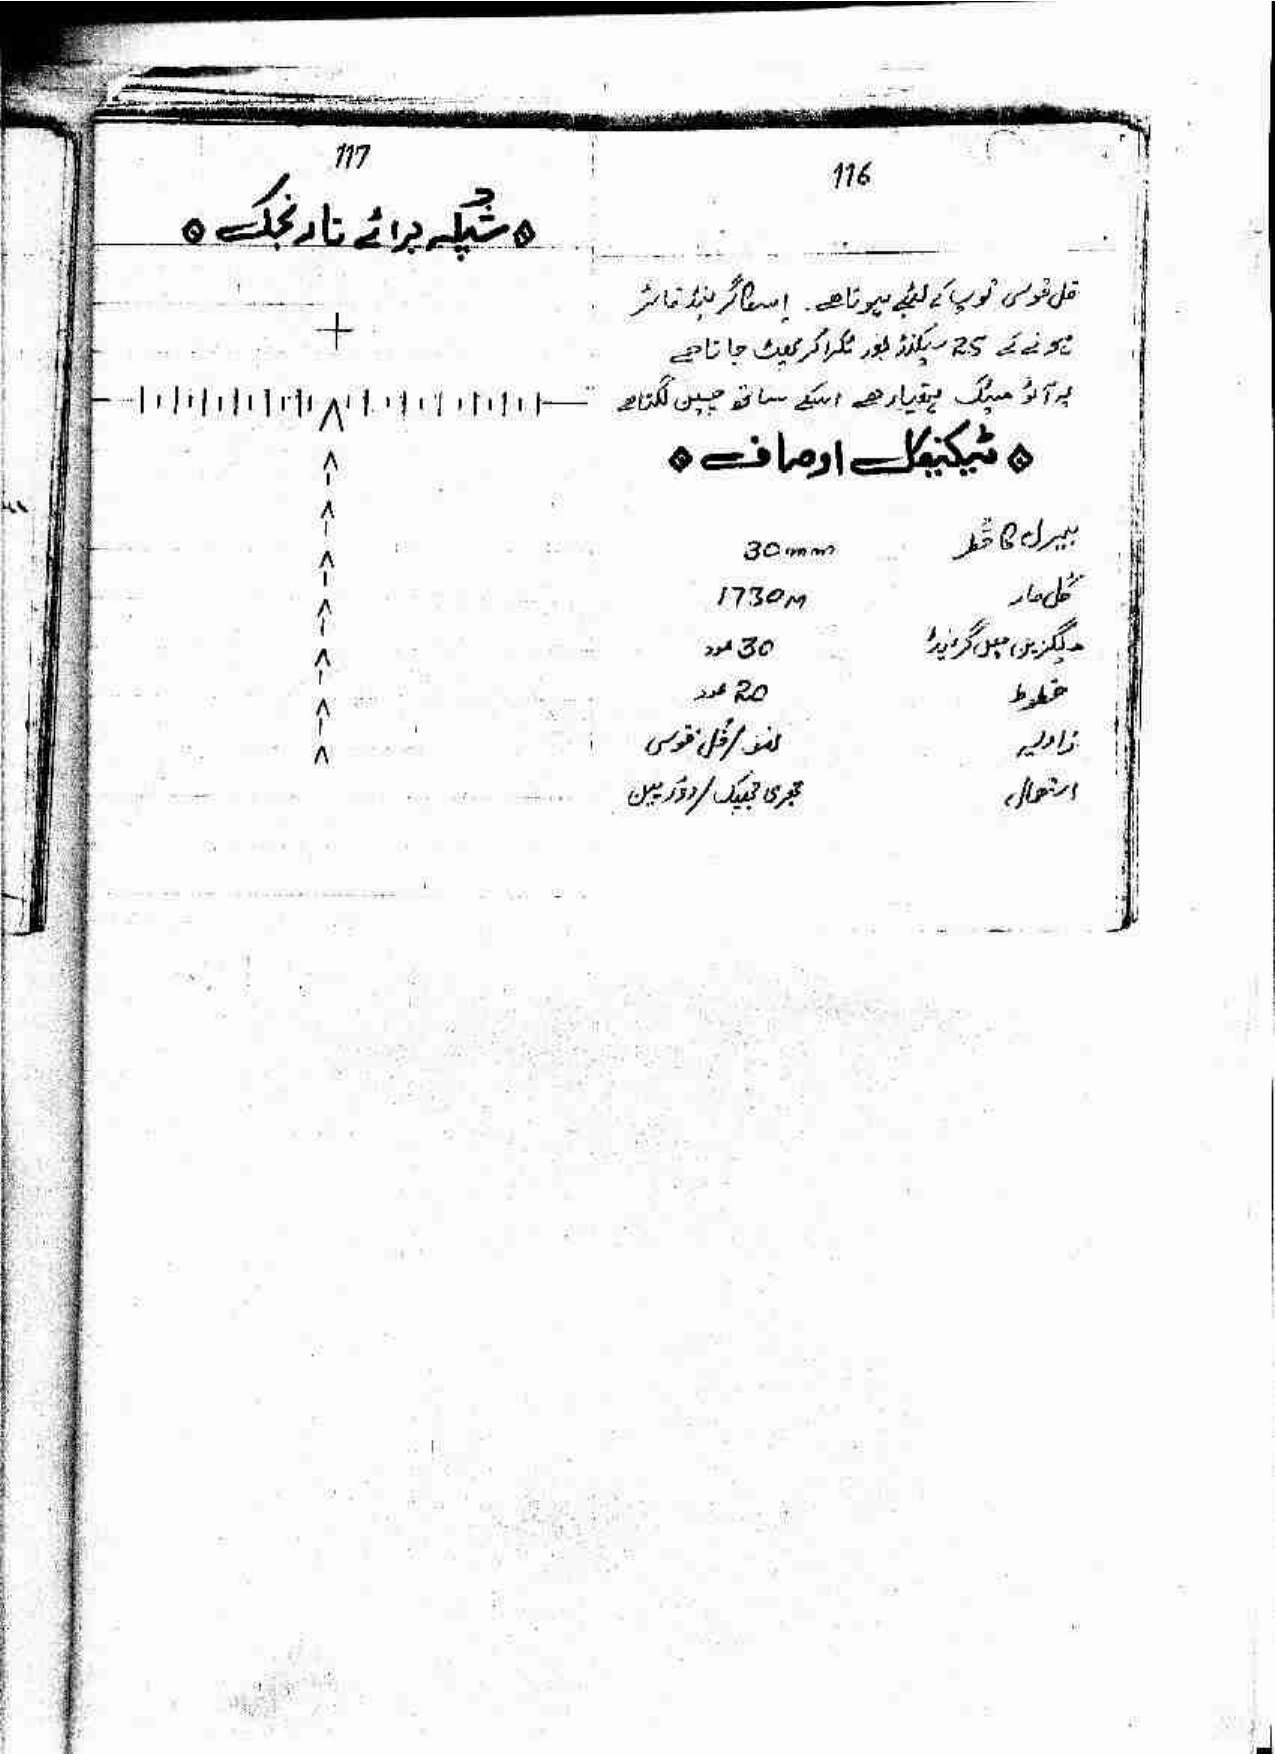 116
فل قوسی توپ کے لیئے ہوتا ہے۔ اسکا گرنیڈ فائر
ہونے کے 25 سیکنڈ بعد ٹکرا کر پھٹ جاتا ہے
یہ آٹو میٹک ہتھیار ہے اسکے ساتھ چین لگتا ہے
ٹیکنیکل اوصاف
بیرل کا قطر 30mm
کُل مار 1730M
میگزین میں گرنیڈ 30 عدد
خطوط 20 عدد
زاویہ /فُل قوسی
استعمال /دوربین
117
شبکہ برائے نارنجک